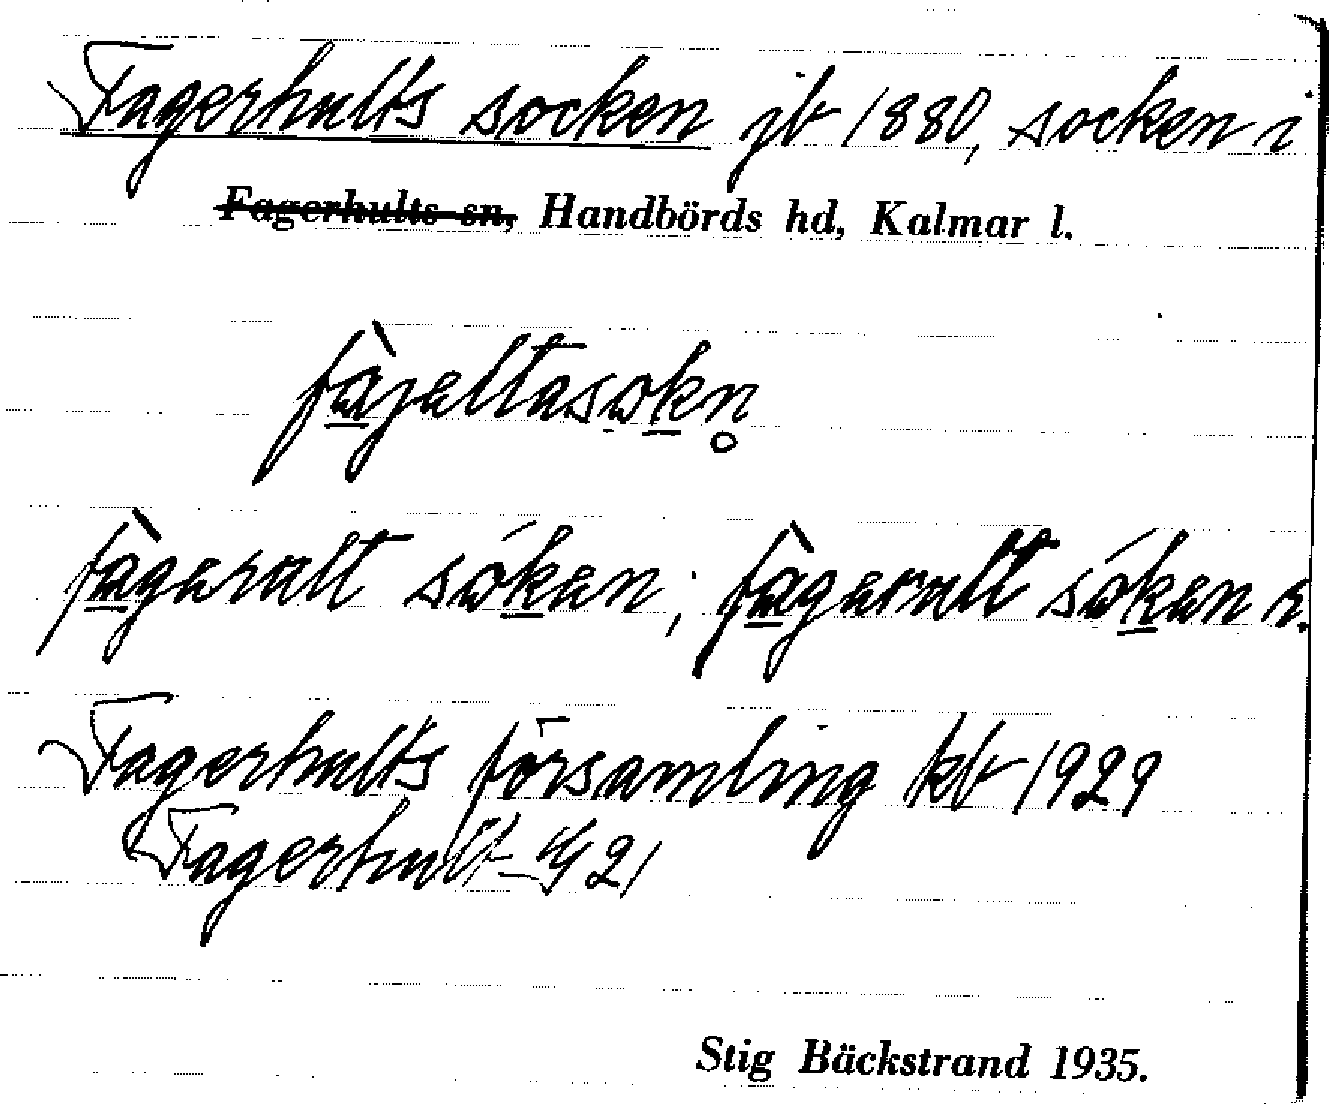 Fagerhults socken jb 1880, socken i
Fagerhults sn, Handbörds hd, Kalmar l.
fàjaltasokn̥
fàgeralt sóken; fàgeralt sóken r.
Fagerhults församling kb 1929
Fagerhult 21
Stig Bäckstrand 1935.